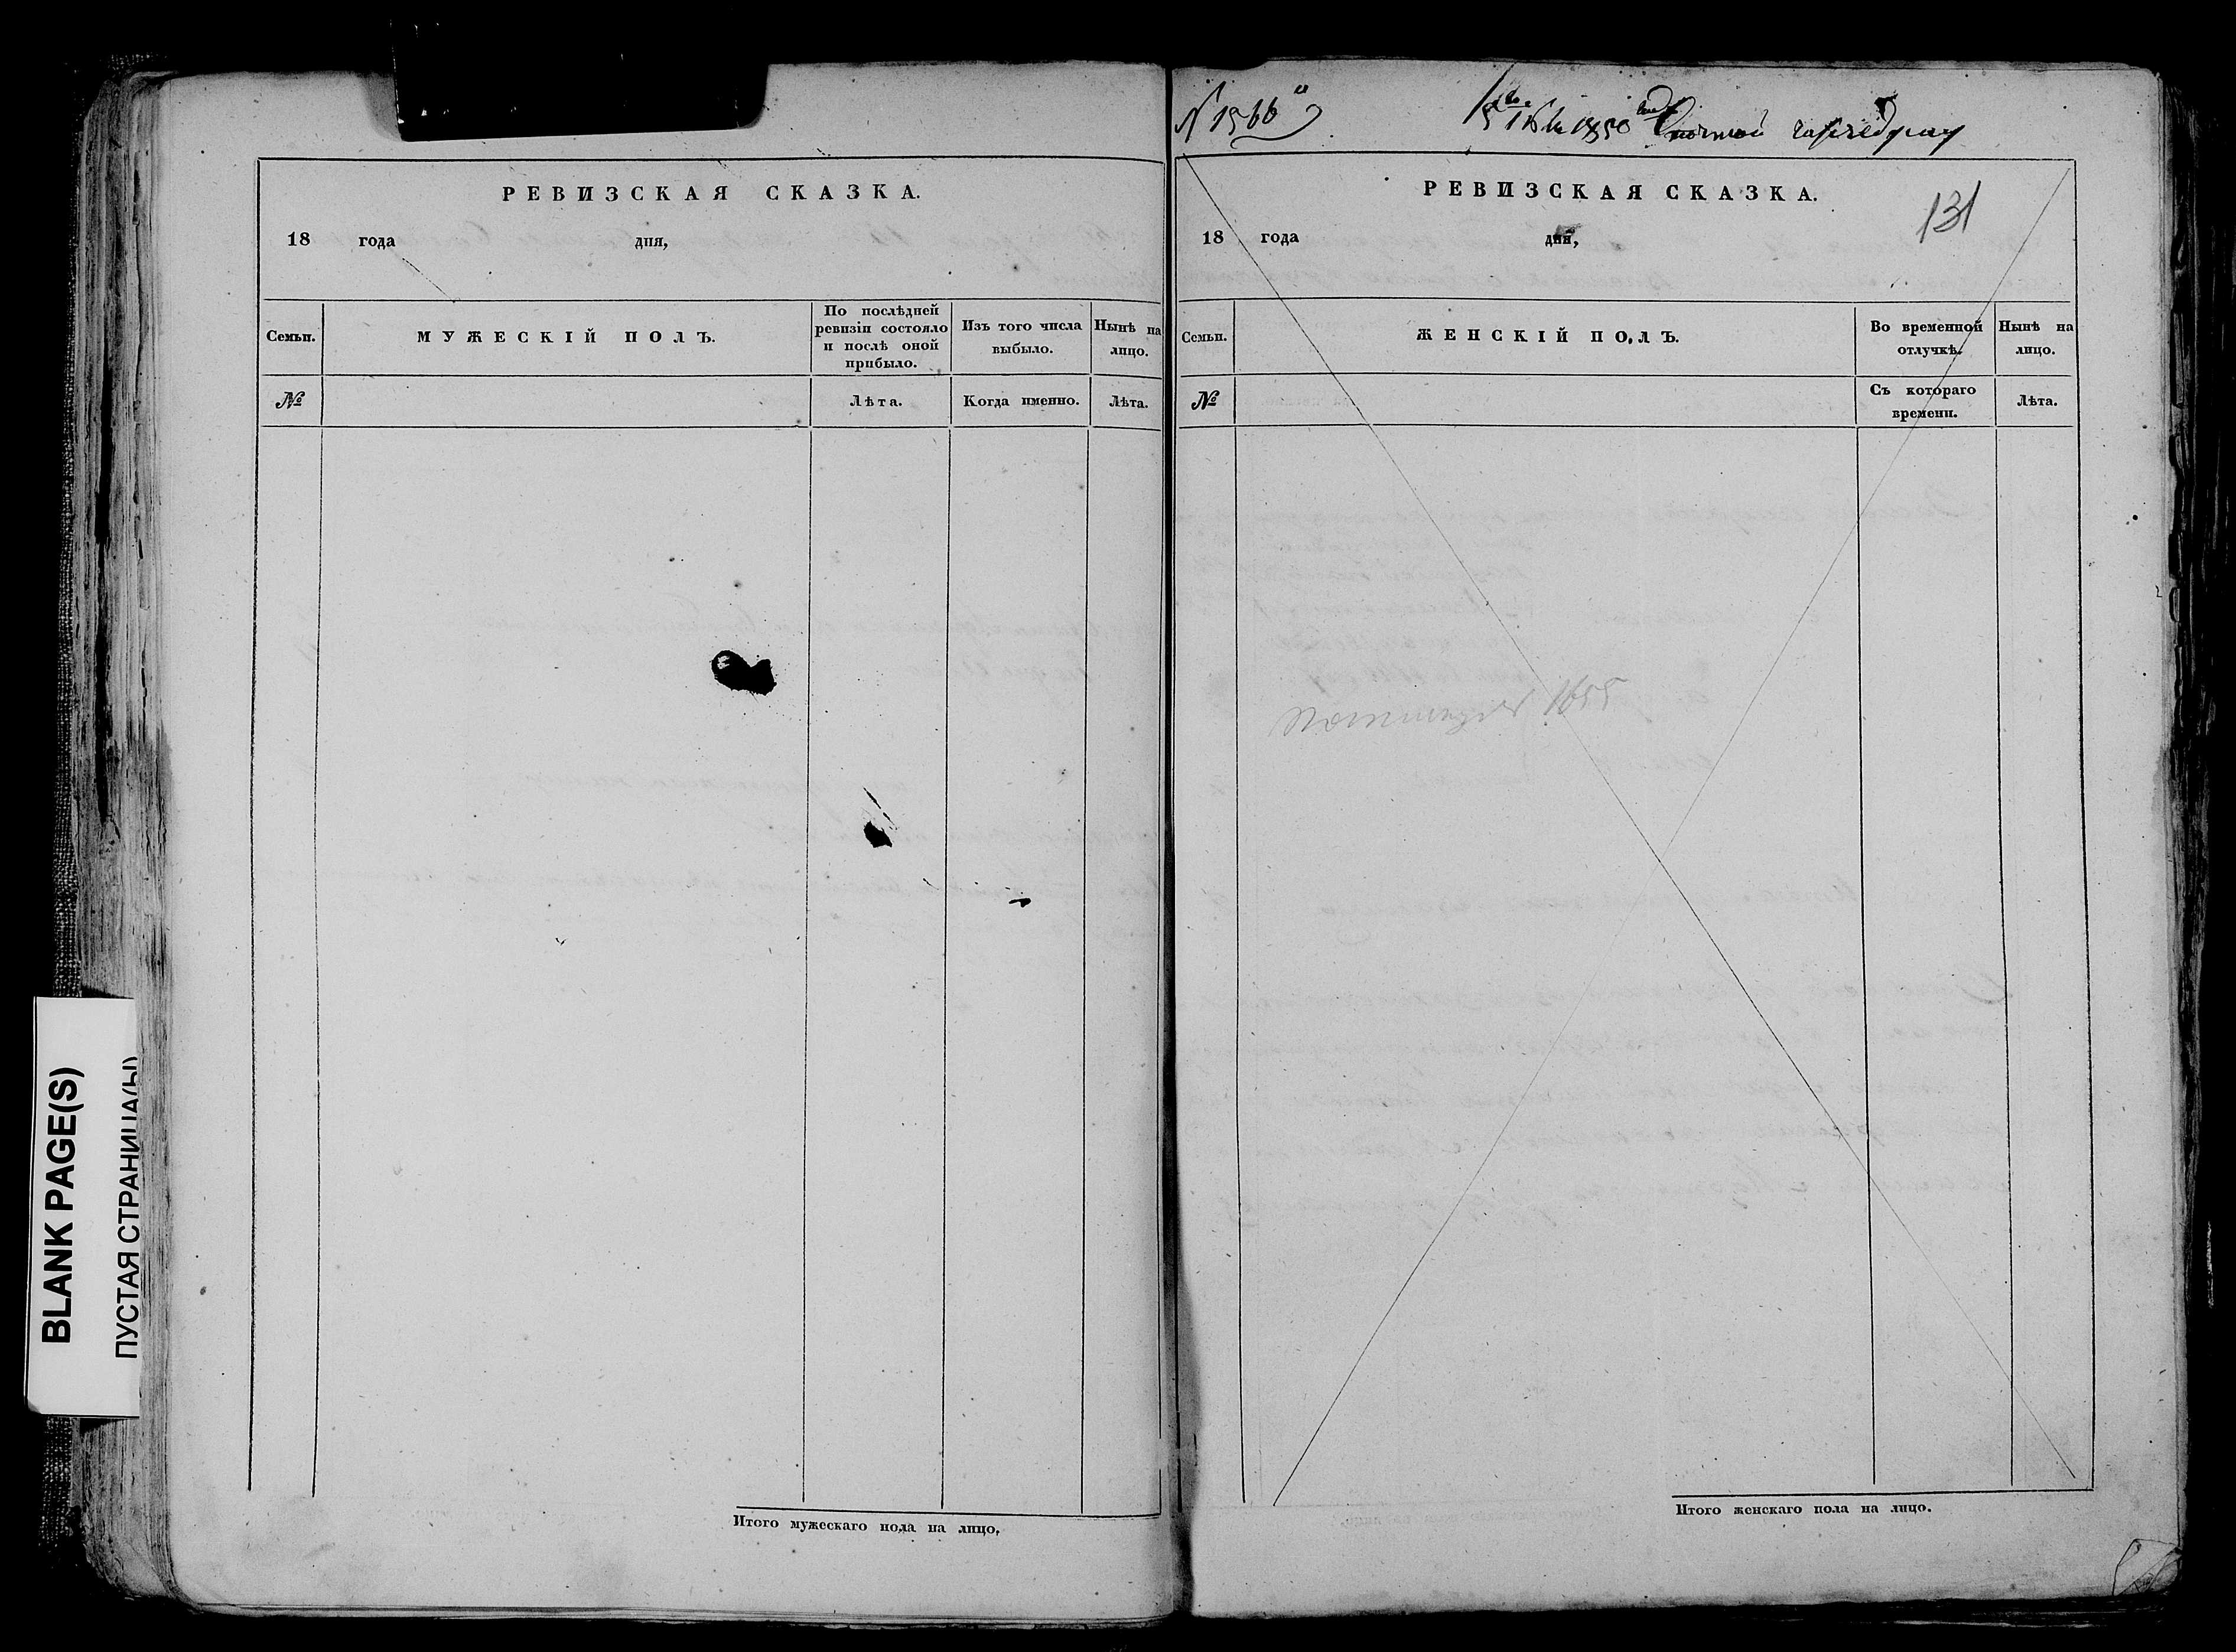 РЕВИЗСКАЯ СКАЗКА.
18 года дня,
Семьи.
МУЖЕСКІЙ ПОЛЪ.
По послѣдней
ревизіи состояло
и послѣ оной
прибыло.
Изъ того числа
выбыло.
Нынѣ на
лицо.
№
Лѣта.
Когда именно.
Лѣта.
Итого мужескаго пола на лицо,
№ 1566
1850
131
РЕВИЗСКАЯ СКАЗКА.
18 года дня,
Семьи.
ЖЕНСКІЙ ПОЛЪ.
Во временной
отлучкѣ.
Нынѣ на
лицо.
№
Съ котораго
времени.
Лѣта.
1655
Итого женскаго пола на лицо.
BLANK PAGE(S)
ПУСТАЯ СТРАНИЦА(Ы)